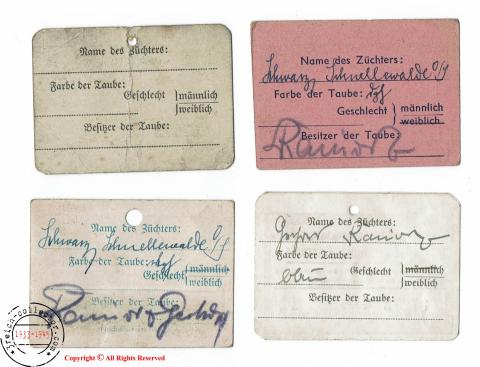 Name des Züchters:
Farbe der Taube:
Geschlecht } männlich
weiblich
Besitzer der Taube:
Name des Züchters:
Schwarz Schnellewalde O/S
Farbe der Taube:
Geschlecht } männlich
weiblich
Besitzer der Taube:
Name des Züchters:
Schwarz Schnellewalde O/S
Farbe der Taube:
Geschlecht } männlich
weiblich
Besitzer der Taube:
Name des Züchters:
Farbe der Taube:
blau Geschlecht } männlich
weiblich
Besitzer der Taube:
reich-collector.com
1933-1945
Copyright © All Rights Reserved